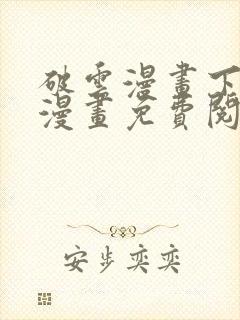 破雲漫畫下
漫畫免費閱
安步奕奕